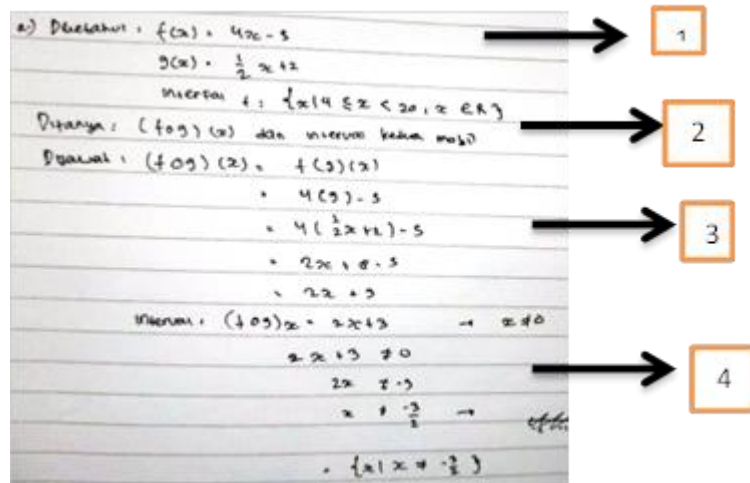 a.) Diketahui : f(x) = 4x - 5
g(x) = 1/2 x + 2
interval f : {x | 4 ≤ x < 20, x ∈ R}
Ditanya : (fog)(x) dan interval kedua
Dijawab : (fog)(x) = f(g)(x)
= 4(g) - 5
= 4(1/2x + 2) - 5
= 2x + 8 - 5
= 2x + 3
interval : (fog)x = 2x+3 → x ≠ 0
2x + 3 ≠ 0
2x ≠ -3
x ≠ -3/2 →
= {x | x ≠ -3/2}
1
2
3
4